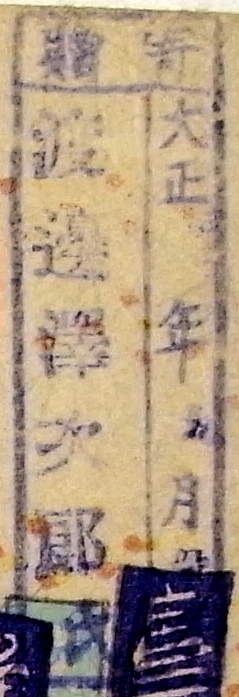 寄贈
大正 年 月
渡邊澤次郎氏